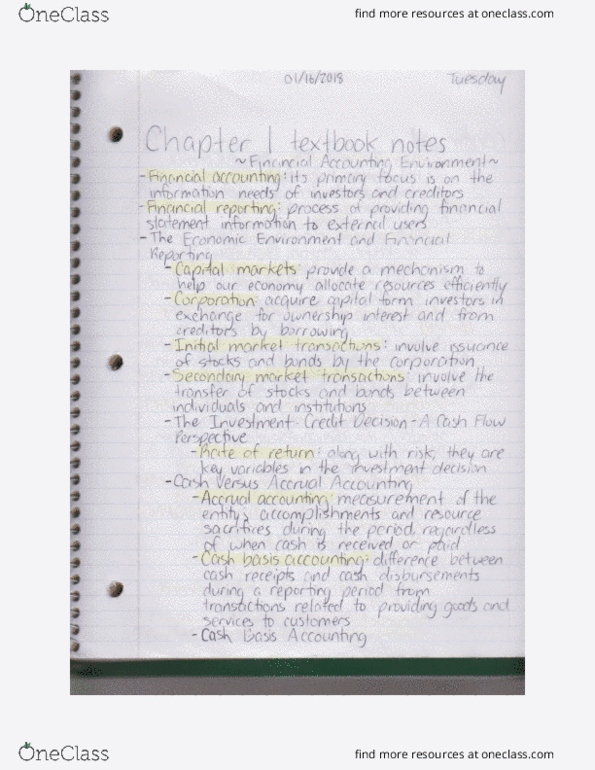 OneClass
find more resources at oneclass.com
01/16/2018 Tuesday
Chapter 1 textbook notes
~Financial Accounting Environment~
-Financial accounting: its primary focus is on the
information needs of investors and creditors
-Financial reporting: process of providing financial
statement information to external users
-The Economic Environment and Financial
Reporting
-Capital markets provide a mechanism to
help our economy allocate resources efficiently
-Corporation acquire capital form investors in
exchange for ownership interest and from
creditors by borrowing
-Initial market transactions: involve issuance
of stocks and bonds by the corporation
-Secondary market transactions: involve the
transfer of stocks and bonds between
individuals and institutions
-The Investment-Credit Decision-A Cash Flow
Perspective
-Rate of return: along with risk, they are
key variables in the investment decision
-Cash Versus Accrual Accounting
-Accrual accounting: measurement of the
entity's accomplishments and resource
sacrifices during the period, regardless
of when cash is received or paid
-Cash basis accounting: difference between
cash receipts and cash disbursements
during a reporting period from
transactions related to providing goods and
services to customers
-Cash Basis Accounting
OneClass
find more resources at oneclass.com